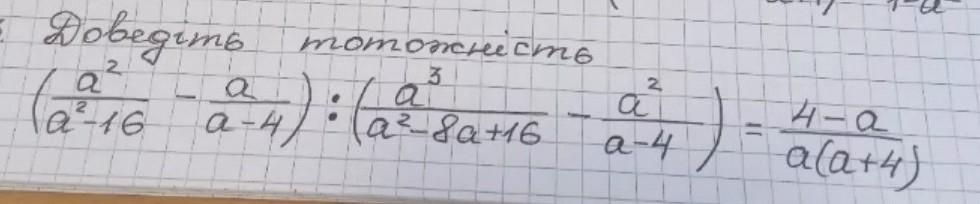 Доведіть тотожність
(a²/(a²-16) - a/(a-4)) : (a³/(a²-8a+16) - a²/(a-4)) = (4-a)/(a(a+4))